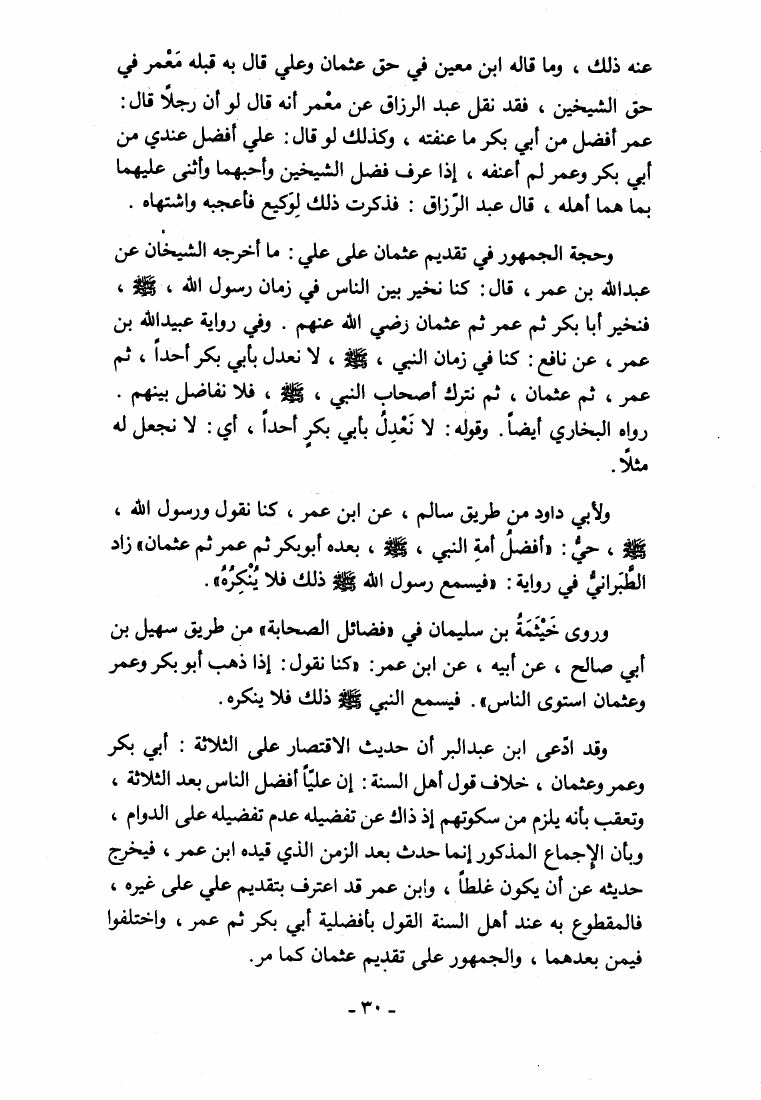 عنه ذلك ، وما قاله ابن معين في حق عثمان وعلي قال به قبله مَعْمر في
حق الشيخين ، فقد نقل عبد الرزاق عن معْمر أنه قال لو أن رجلاً قال:
عمر أفضل من أبي بكر ما عنفته ، وكذلك لو قال: علي أفضل عندي من
أبي بكر وعمر لم أعنفه ، إذا عرف فضل الشيخين وأحبهما وأثنى عليهما
بما هما أهله ، قال عبد الرّزاق : فذكرت ذلك لِوَكيع فأعجبه واشتهاه .
وحجة الجمهور في تقديم عثمان على علي: ما أخرجه الشيخان عن
عبدالله بن عمر ، قال: كنا نخير بين الناس في زمان رسول الله ، ﷺ ،
فنخير أبا بكر ثم عمر ثم عثمان رضي الله عنهم . وفي رواية عبيدالله بن
عمر ، عن نافع: كنا في زمان النبي ، ﷺ ، لا نعدل بأبي بكر أحداً ، ثم
عمر ، ثم عثمان ، ثم نترك أصحاب النبي ، ﷺ ، فلا نفاضل بينهم .
رواه البخاري أيضاً. وقوله: لا نَعْدِلُ بأبي بكرٍ أحداً ، أي: لا نجعل له
مثلًا.
ولأبي داود من طريق سالم ، عن ابن عمر ، كنا نقول ورسول الله ،
ﷺ ، حيٌّ: «أفضلُ أمةِ النبي ، ﷺ ، بعده أبوبكر ثم عمر ثم عثمان» زاد
الطَّبَرانيُّ في رواية: «فيسمع رسول الله ﷺ ذلك فلا يُنْكِرُهُ».
وروى خَيْثَمَةُ بن سليمان في «فضائل الصحابة» من طريق سهيل بن
أبي صالح ، عن أبيه ، عن ابن عمر: «كنا نقول: إذا ذهب أبو بكر وعمر
وعثمان استوى الناس». فيسمع النبي ﷺ ذلك فلا ينكره.
وقد ادّعى ابن عبدالبر أن حديث الاقتصار على الثلاثة : أبي بكر
وعمر وعثمان ، خلاف قول أهل السنة: إن عليّاً أفضل الناس بعد الثلاثة ،
وتعقب بأنه يلزم من سكوتهم إذ ذاك عن تفضيله عدم تفضيله على الدوام ،
وبأن الإجماع المذكور إنما حدث بعد الزمن الذي قيده ابن عمر ، فيخرج
حديثه عن أن يكون غلطاً ، وابن عمر قد اعترف بتقديم علي على غيره ،
فالمقطوع به عند أهل السنة القول بأفضلية أبي بكر ثم عمر ، واختلفوا
فيمن بعدهما ، والجمهور على تقديم عثمان كما مر.
- ٣٠ -